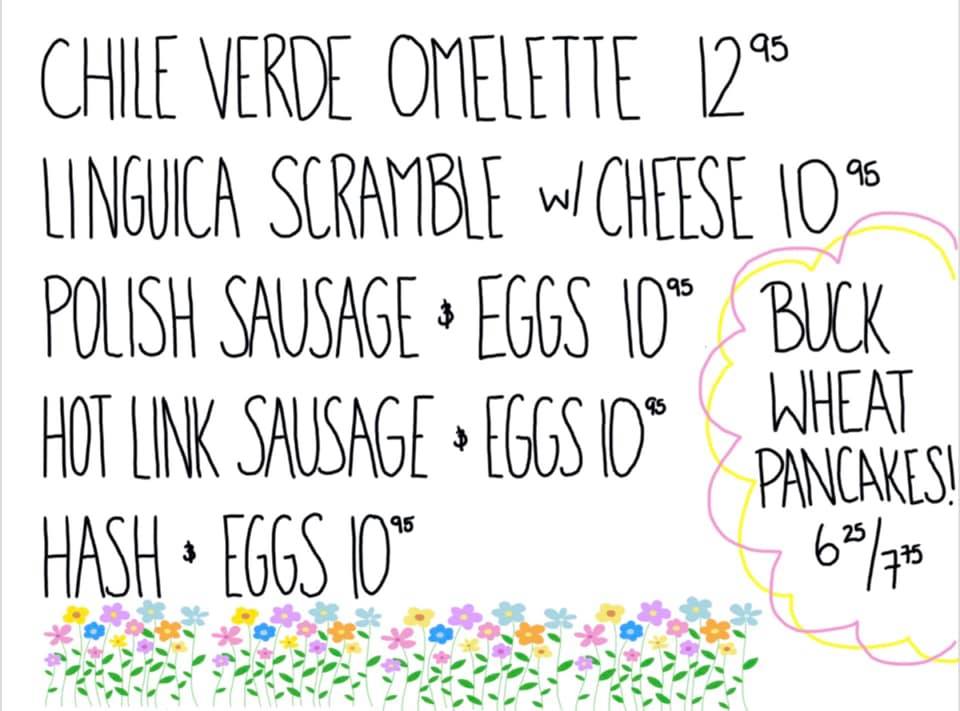 CHILE VERDE OMELETTE 12 95
LINGUICA SCRAMBLE w/ CHEESE 10 95
POLISH SAUSAGE & EGGS 10 95
HOT LINK SAUSAGE & EGGS 10 95
HASH & EGGS 10 95
BUCK
WHEAT
PANCAKES!
6 25/7 75